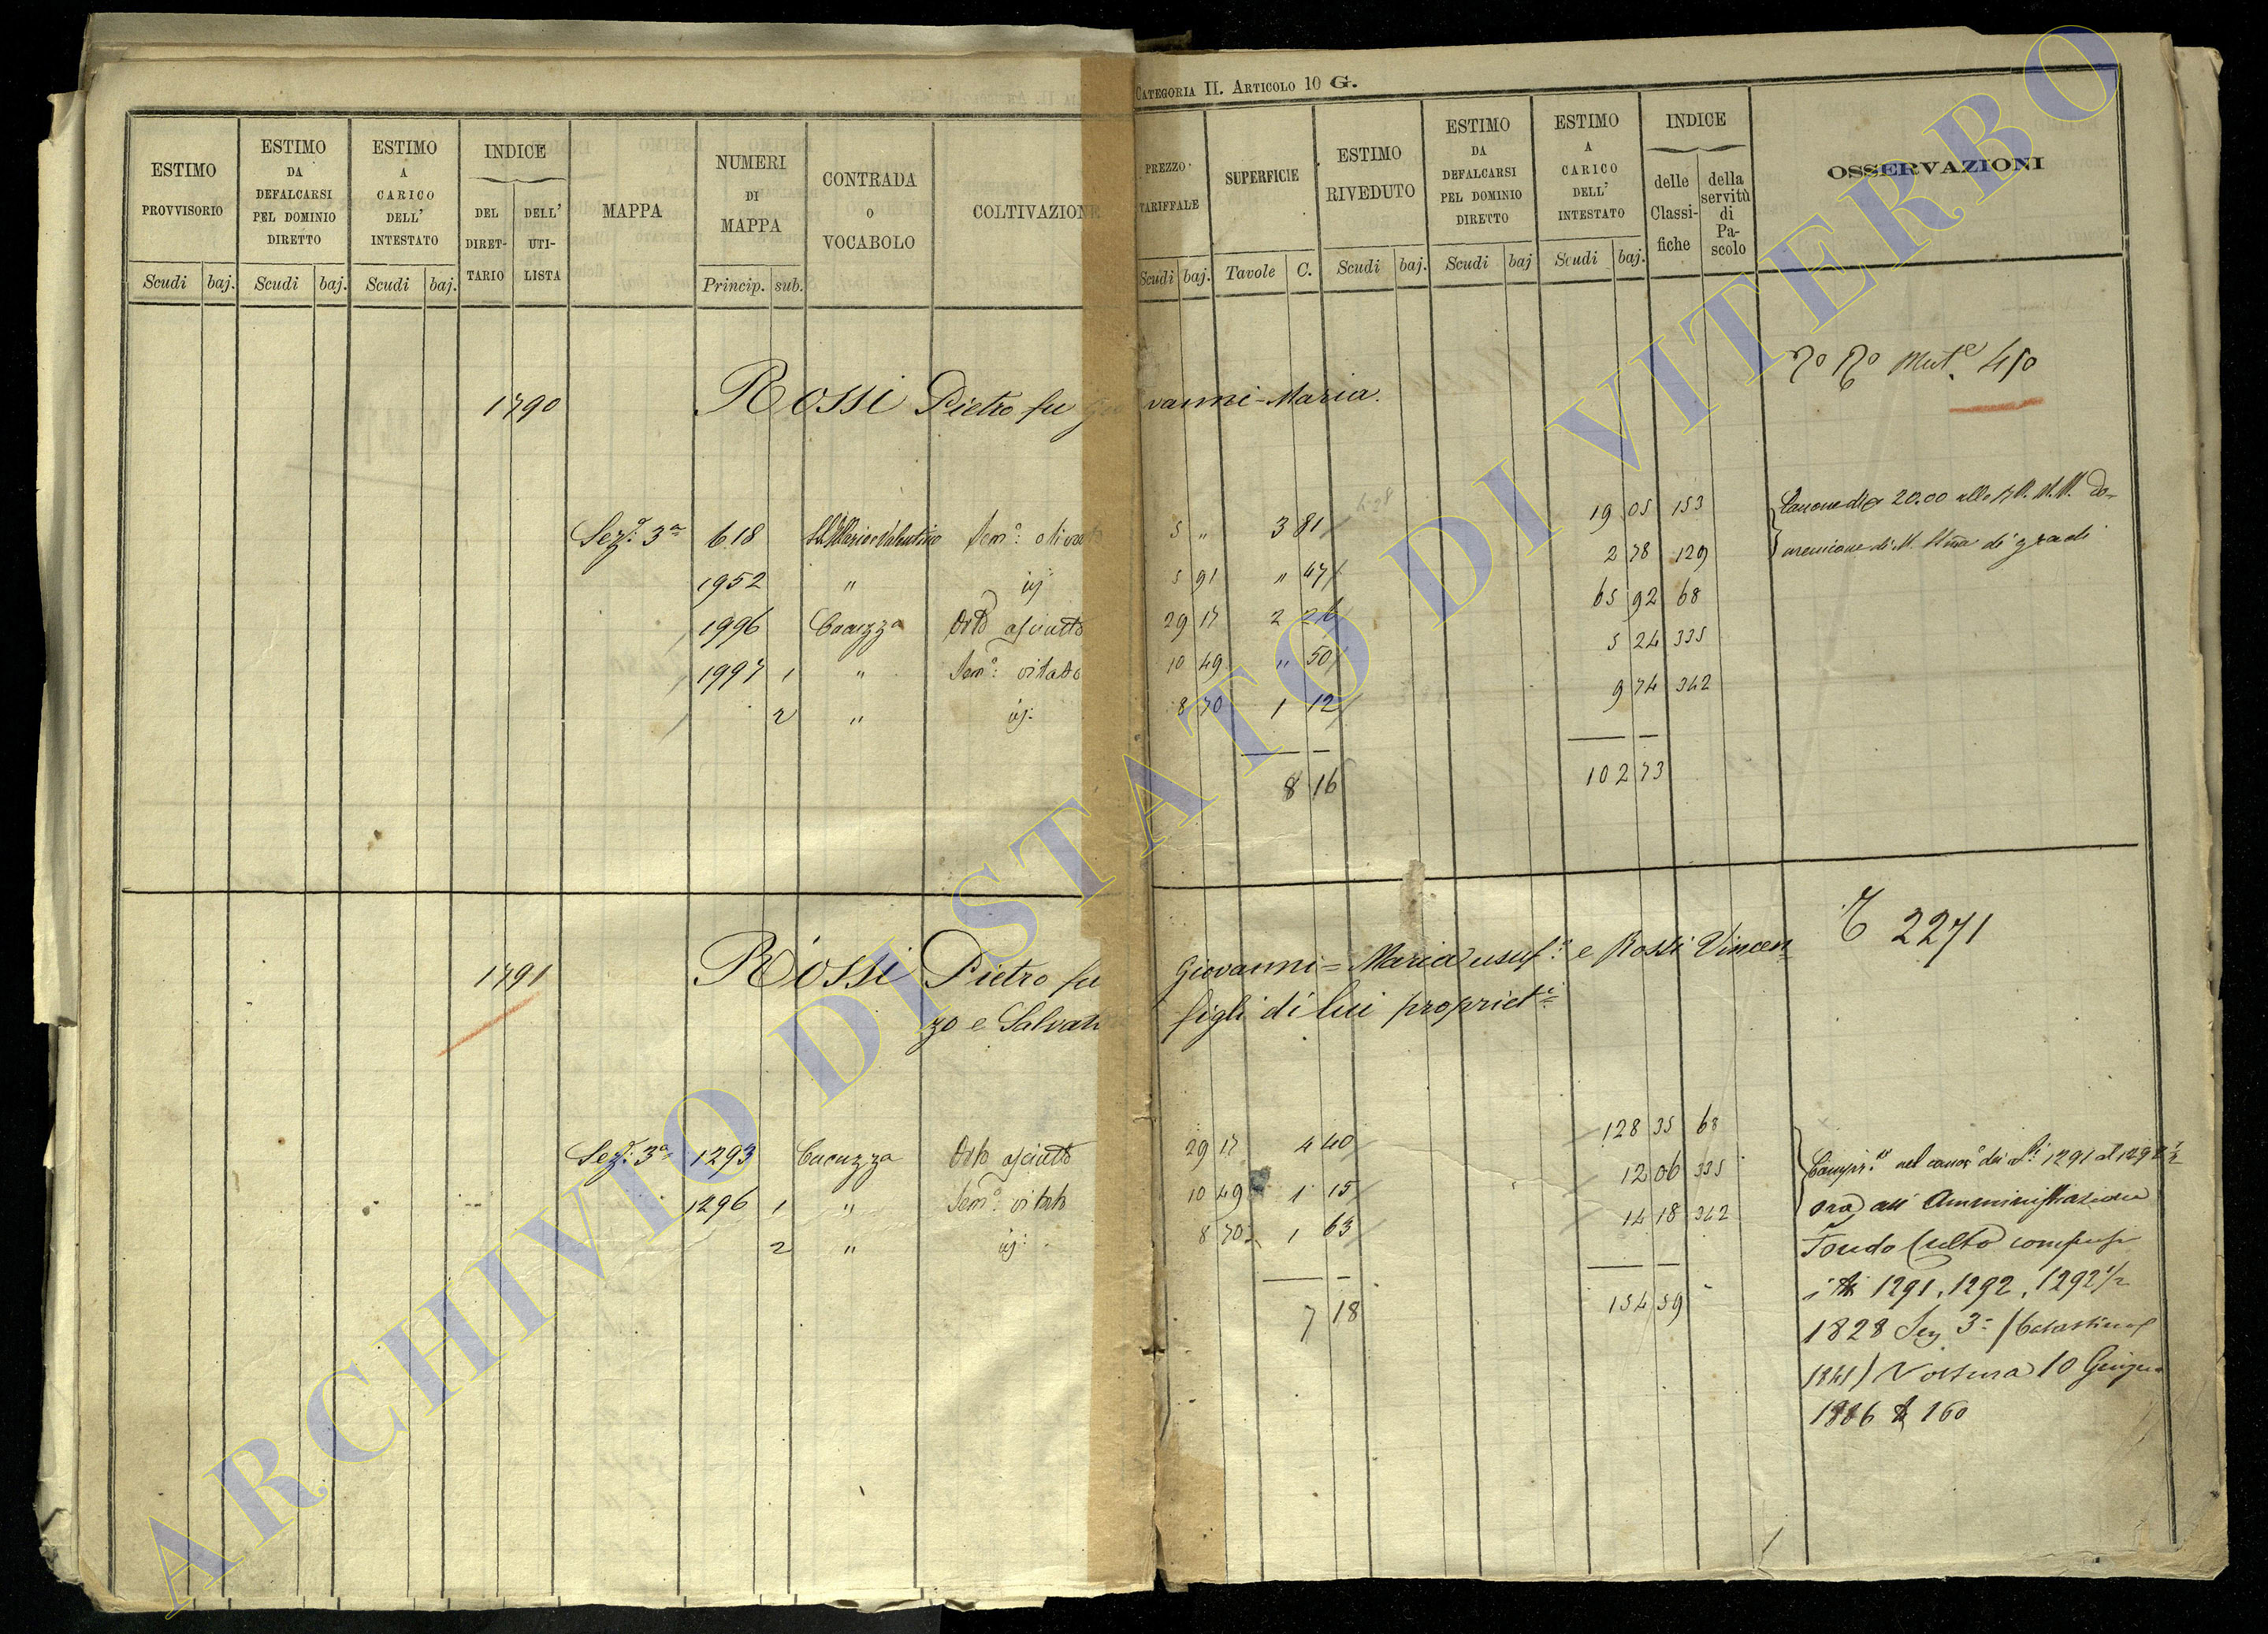 CATEGORIA II. ARTICOLO 10 G.
ESTIMO PROVVISORIO
ESTIMO DA DEFALCARSI PEL DOMINIO DIRETTO
ESTIMO A CARICO DELL' INTESTATO
INDICE
DEL DIRET-TARIO
DELL' UTI-LISTA
MAPPA
NUMERI DI MAPPA
CONTRADA O VOCABOLO
COLTIVAZIONE
PREZZO TARIFFALE
SUPERFICIE
ESTIMO RIVEDUTO
ESTIMO DA DEFALCARSI PEL DOMINIO DIRETTO
ESTIMO A CARICO DELL' INTESTATO
INDICE
delle Classi-fiche
della servitù di Pa-scolo
OSSERVAZIONI
Scudi baj. Scudi baj. Scudi baj. Princip. sub. Scudi baj. Tavole C. Scudi baj. Scudi baj Scudi baj.
1790 Rossi Pietro fu Giovanni-Maria.
Sez: 3a 618 Sem: olivato 5 " 3 81 19 05 153
1952 " id 5 91 " 47 2 78 129
1996 Cacuzza Orto asciutto 29 17 2 26 65 92 68
1997 1 " Sem: vitato 10 49 " 50 5 24 335
2 " id: 8 70 1 12 9 74 342
8 16 102 73
2271
1791 Rossi Pietro fu Giovanni=Maria usuf: e Rossi Vincen=
zo e Salvat figli di lui propriet:
Sez: 3a 1293 Cacuzza Orto asciutto 29 17 4 40 128 35 68
1296 1 " Sem: vitato 10 49 1 15 12 06 335
2 " id: 8 70 1 63 14 18 342
7 18 154 59
ora all' Amministrazione
Fondo Culto
1291, 1292, 1292 1/2
1828 Sez 3a
1841) Voltura 10 Giugno
1886 160
ARCHIVIO DI STATO DI VITERBO